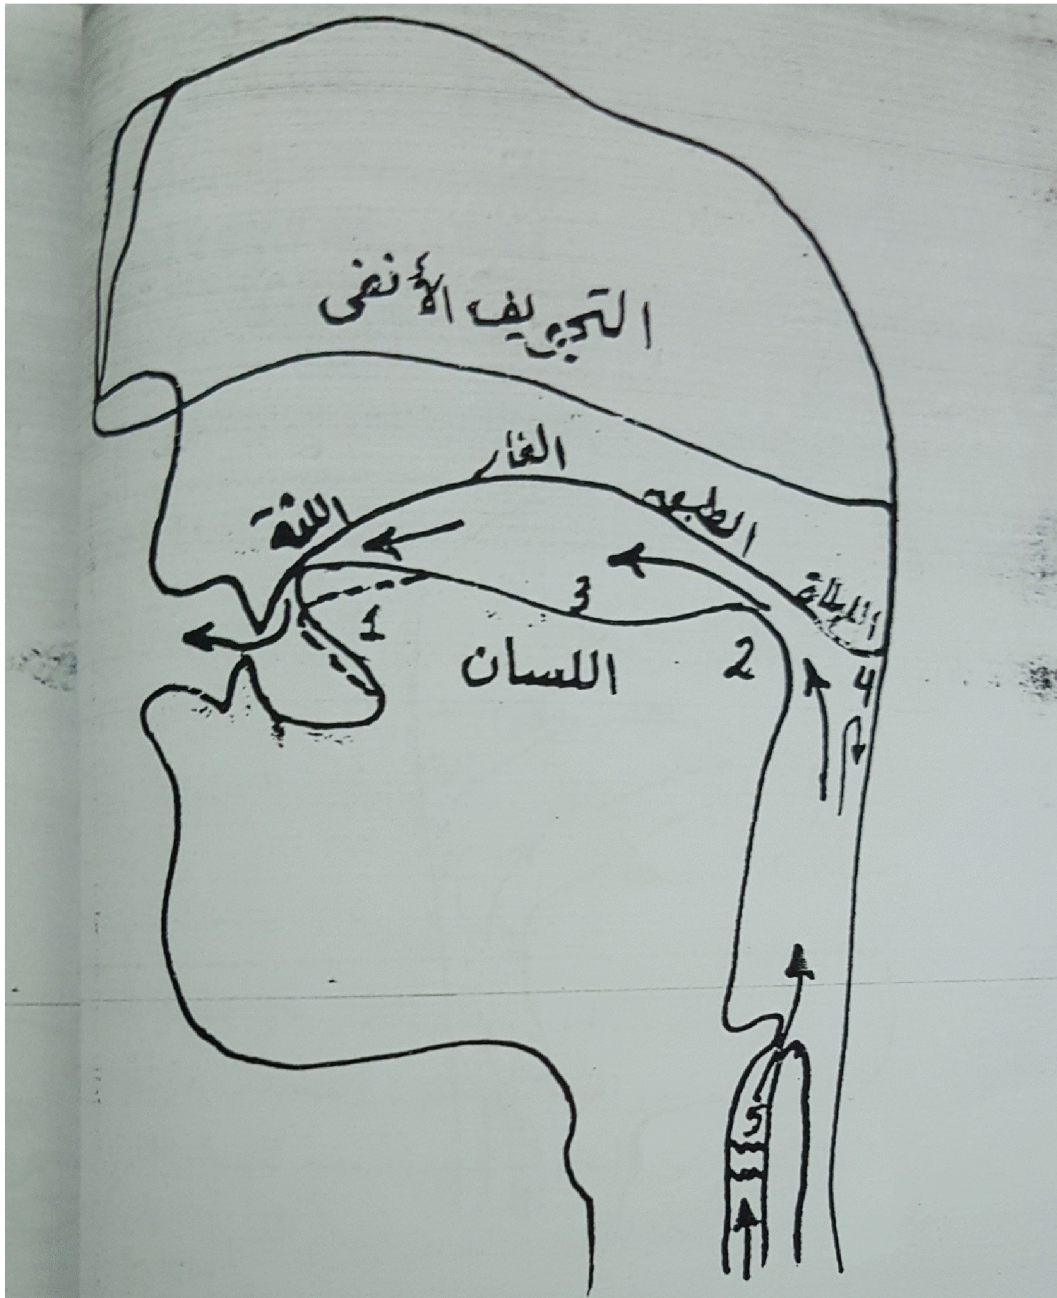 التجويف الأنفى
الغار
الطبق
اللثة
اللهاة
3
1
اللسان
2
4
5